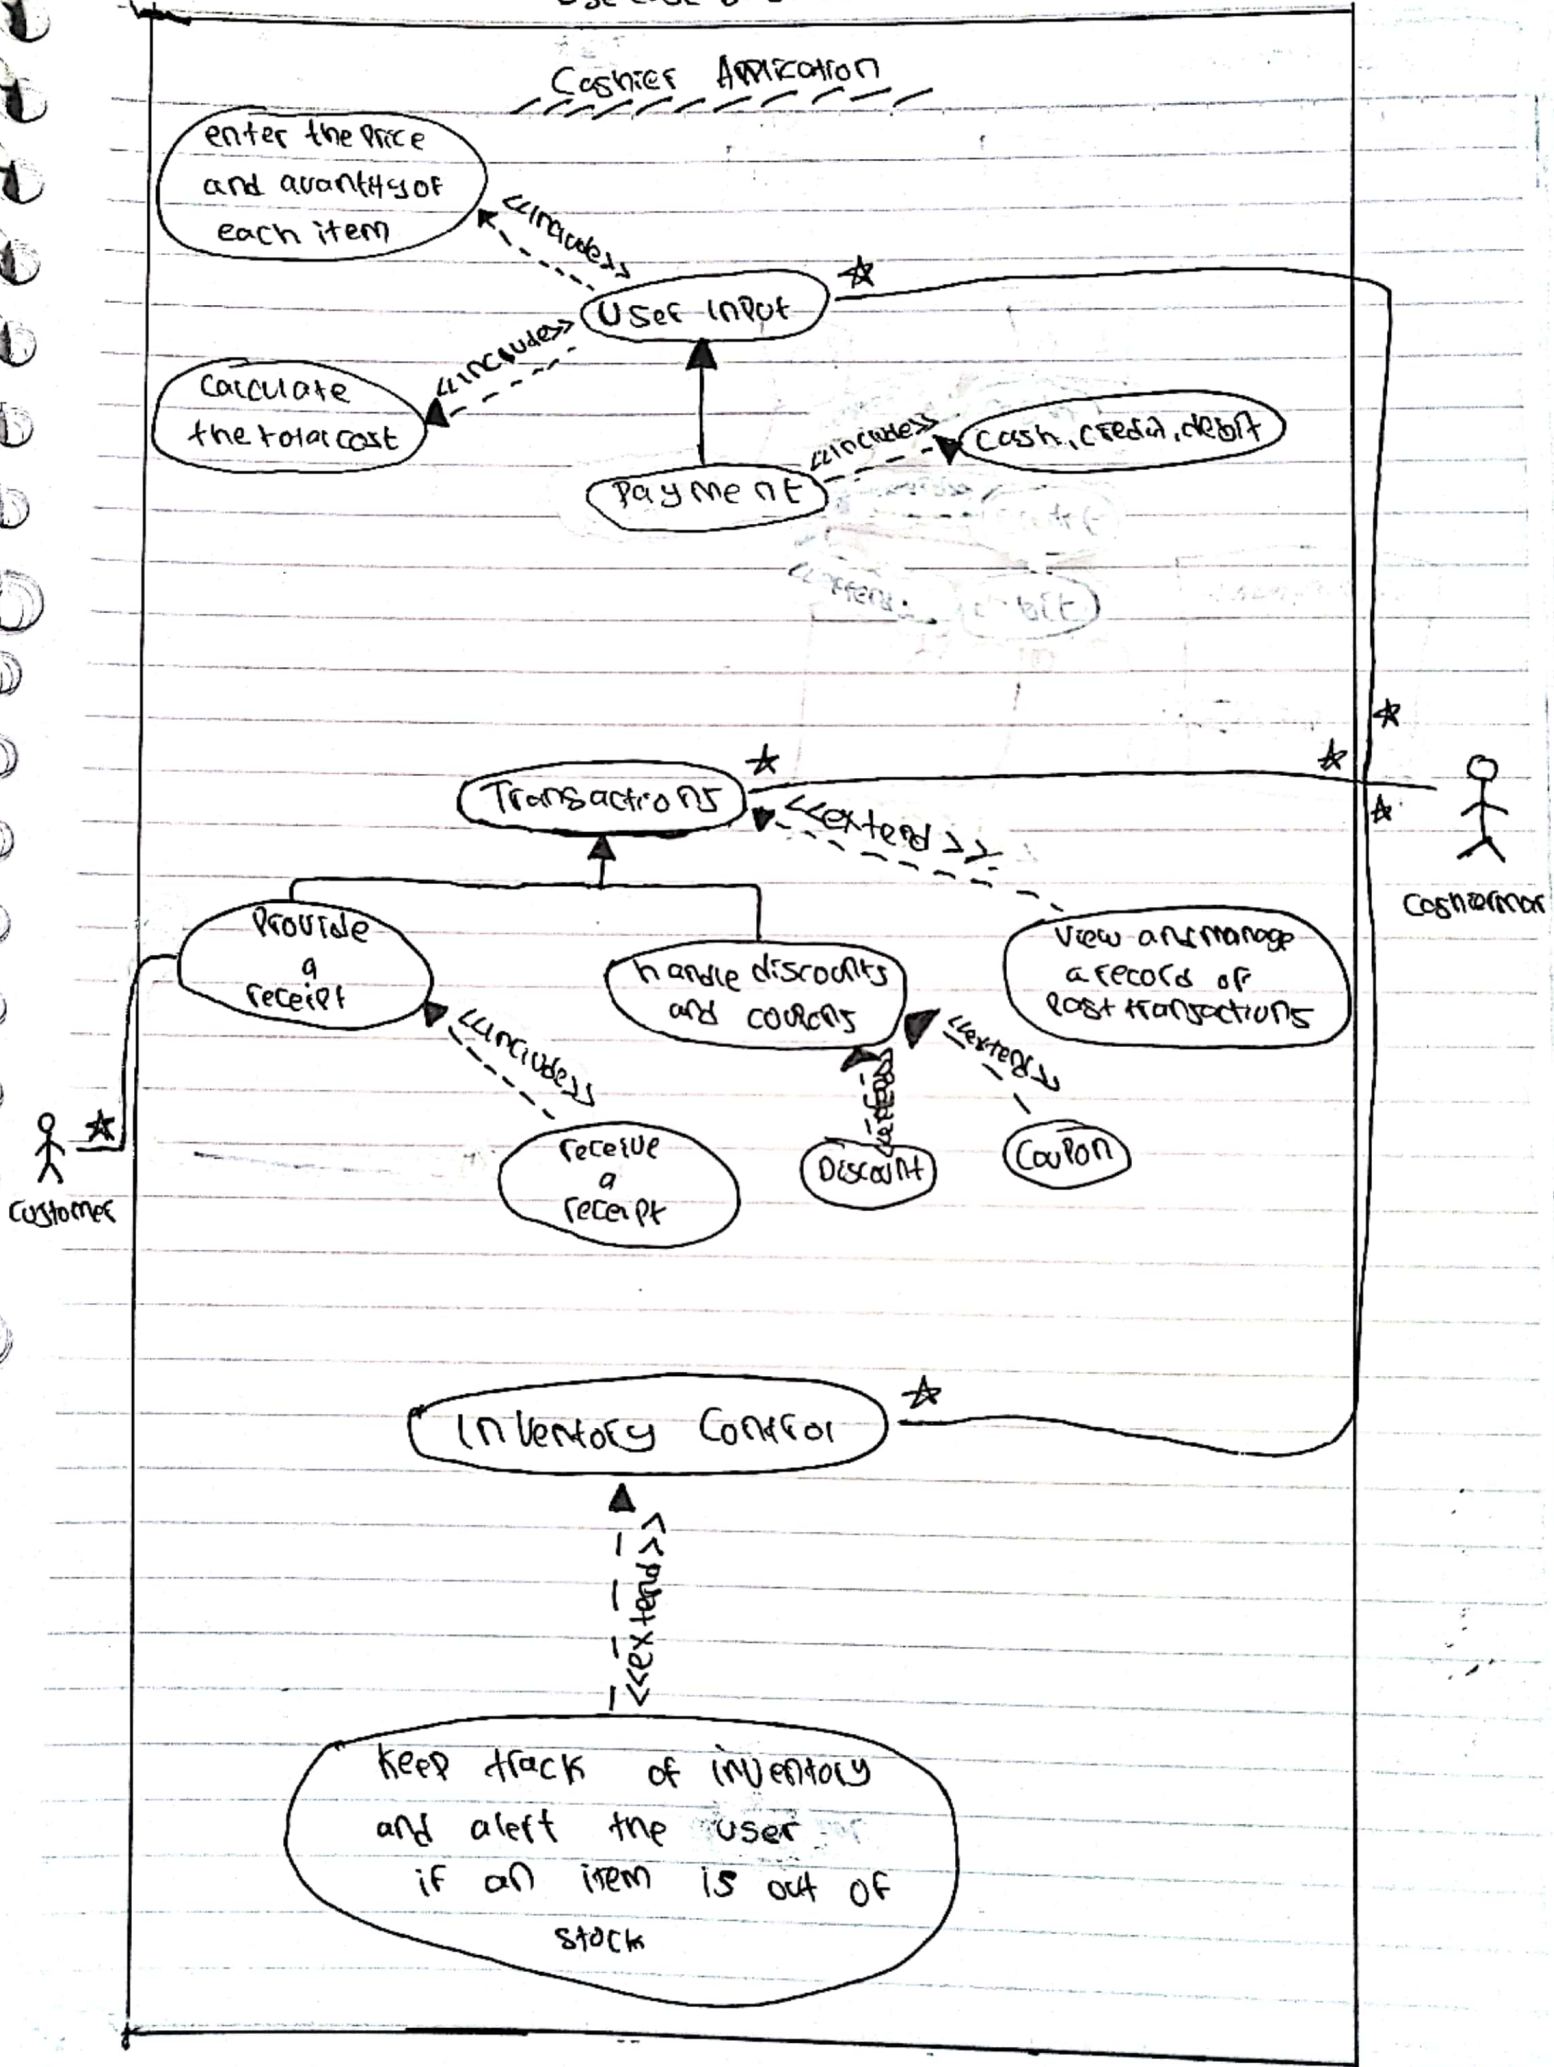 Cashier Application
enter the price
and quantity of
each item
<<include>>
User input
<<include>>
Calculate
the total cost
<<include>>
Cash, credit, debit
Payment
Transactions
<<extend>>
Cashierman
Provide
a
receipt
handle discounts
and coupons
View and manage
a record of
past transactions
<<include>>
<<extend>>
<<extend>>
receive
a
receipt
Discount
Coupon
Customer
Inventory Control
<<extend>>
keep track of inventory
and alert the user
if an item is out of
stock